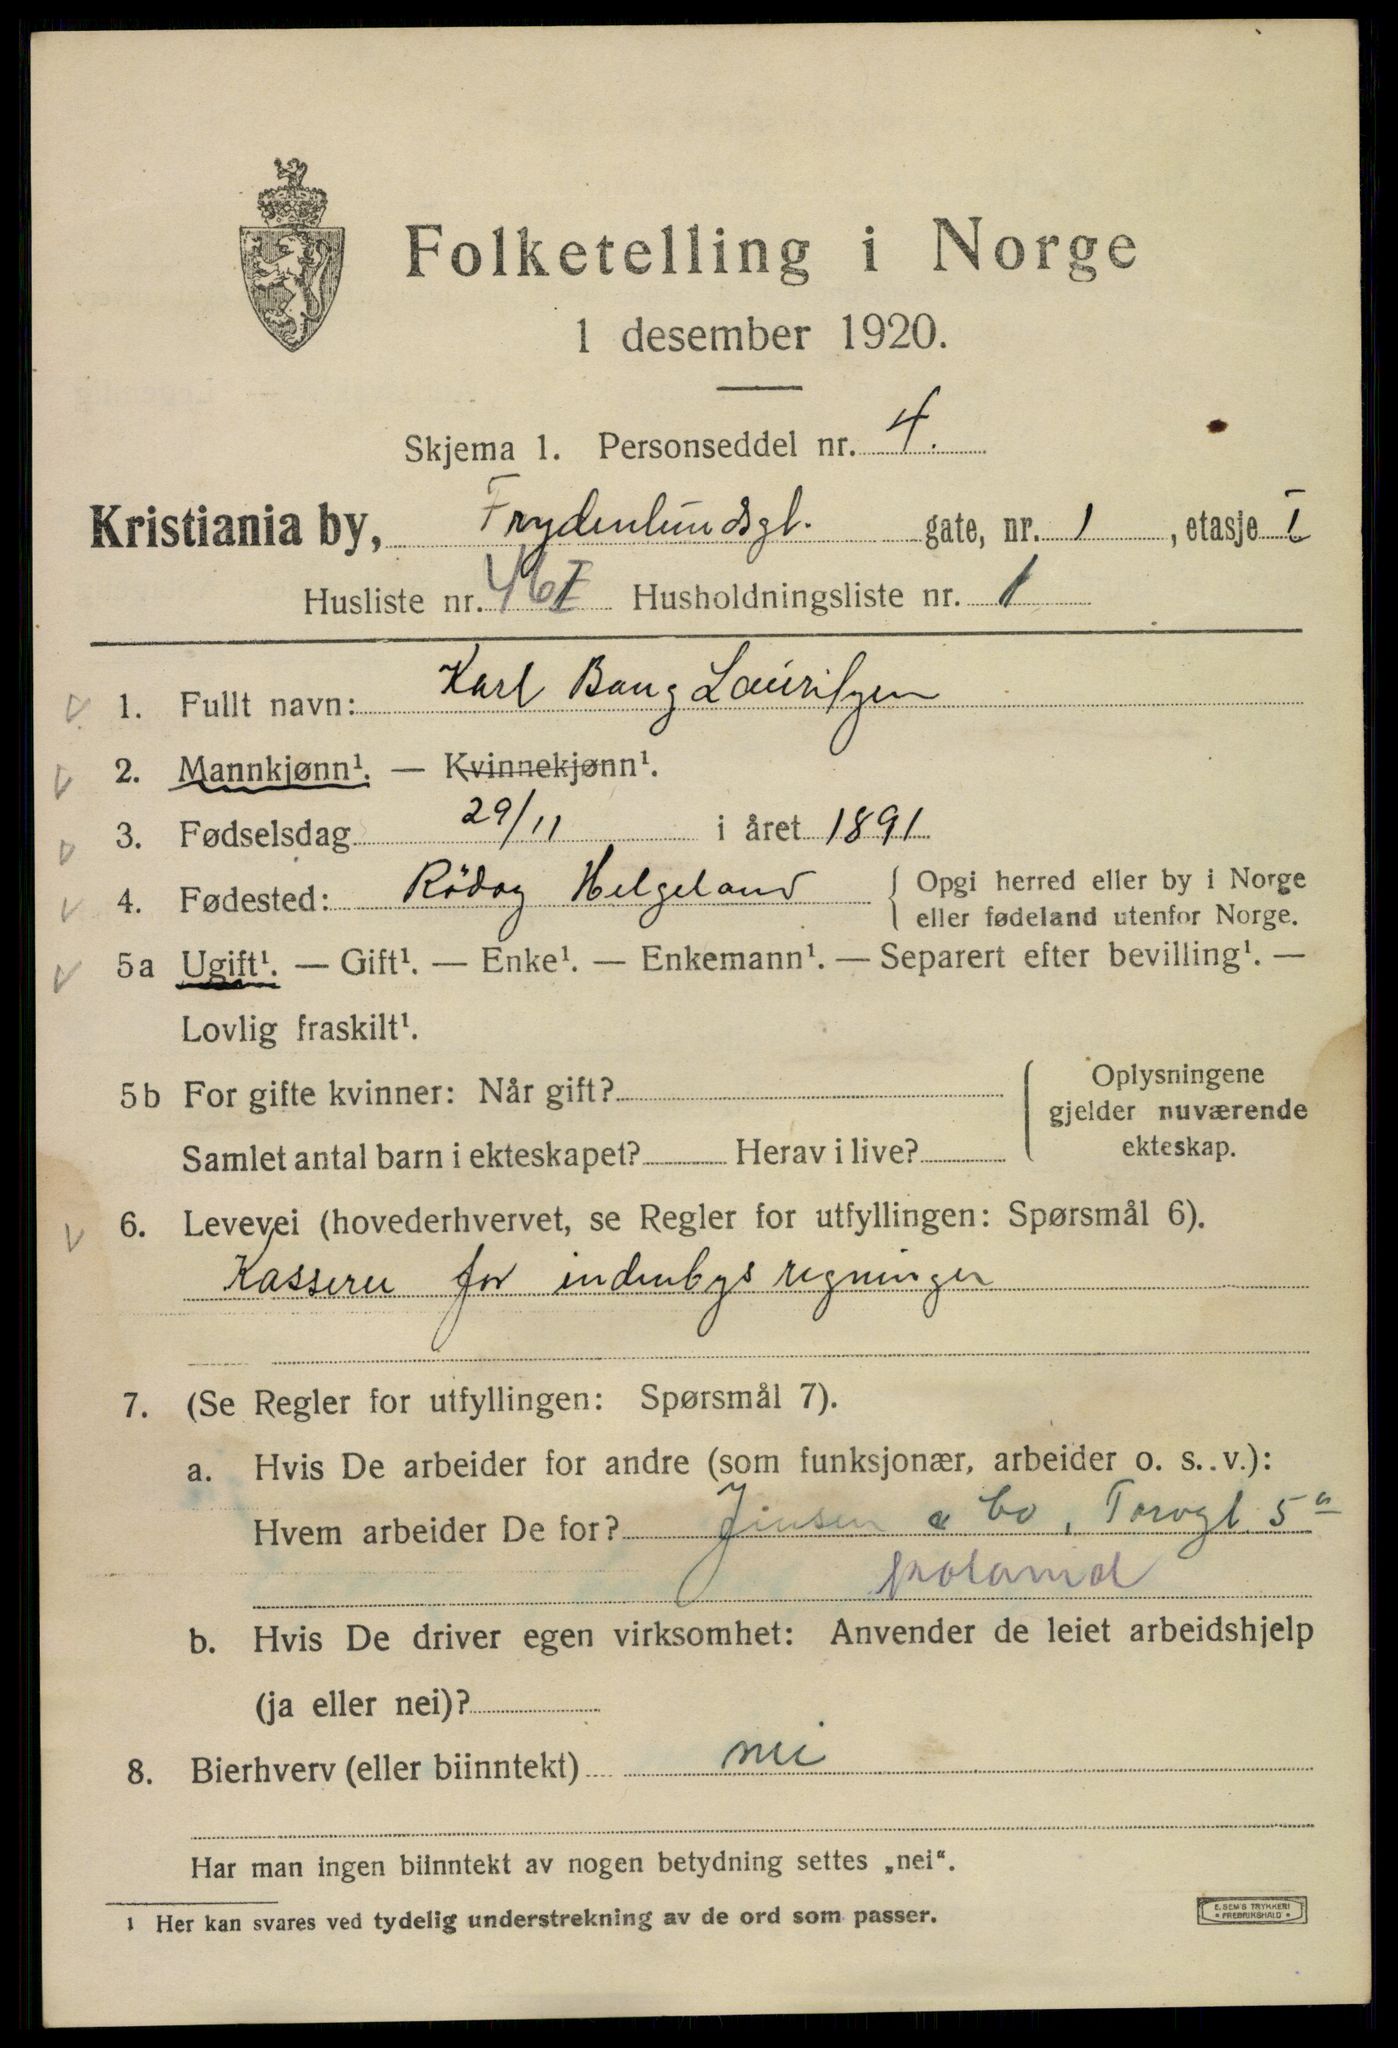 Folketelling i Norge
1 desember 1920.
Skjema 1. Personseddel nr. 4.
Kristiania by, Frydenlundsgt. gate, nr. 1, etasje I
Husliste nr. 46 I Husholdningsliste nr. 1
1. Fullt navn: Karl Bang Lauritzen
2. Mannkjønn¹. — Kvinnekjønn¹.
3. Fødselsdag 29/11 i året 1891
4. Fødested: Rödøy Helgeland { Opgi herred eller by i Norge
eller fødeland utenfor Norge.
5a Ugift¹. — Gift¹. — Enke¹. — Enkemann¹. — Separert efter bevilling¹. —
Lovlig fraskilt¹.
5b For gifte kvinner: Når gift? { Oplysningene
gjelder nuværende
Samlet antal barn i ekteskapet? Herav i live? ekteskap.
6. Levevei (hovederhvervet, se Regler for utfyllingen: Spørsmål 6).
Kasserer for indenbys regninger
7. (Se Regler for utfyllingen: Spørsmål 7).
a. Hvis De arbeider for andre (som funksjonær, arbeider o. s. v.):
Hvem arbeider De for? Jensen & Co, Torvgt. 5a
b. Hvis De driver egen virksomhet: Anvender de leiet arbeidshjelp
(ja eller nei)?
8. Bierhverv (eller biinntekt) nei
Har man ingen biinntekt av nogen betydning settes „nei“.
1 Her kan svares ved tydelig understrekning av de ord som passer.
E. SEM'S TRYKKERI
* FREDRIKSHALD *